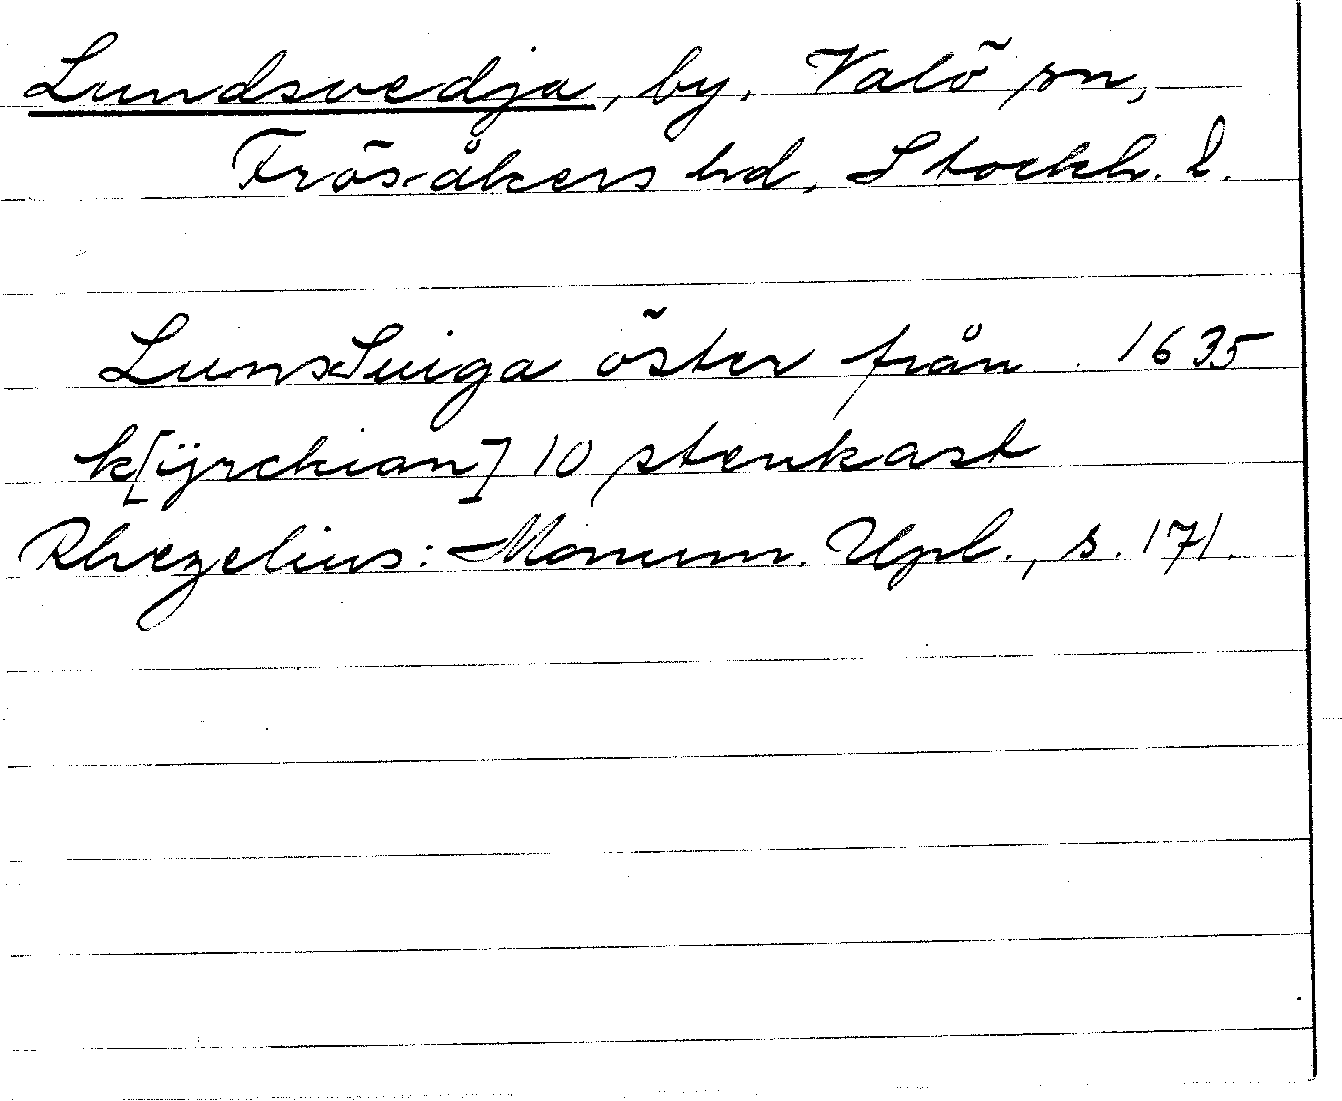 Lundsvedja, by. Valö sn,
Frösåkers hd, Stockh. l.
LunsSuiga öster från 1635
k[ÿrckian] 10 stenkast
Rhezelius: Monum. Upl., s. 171.